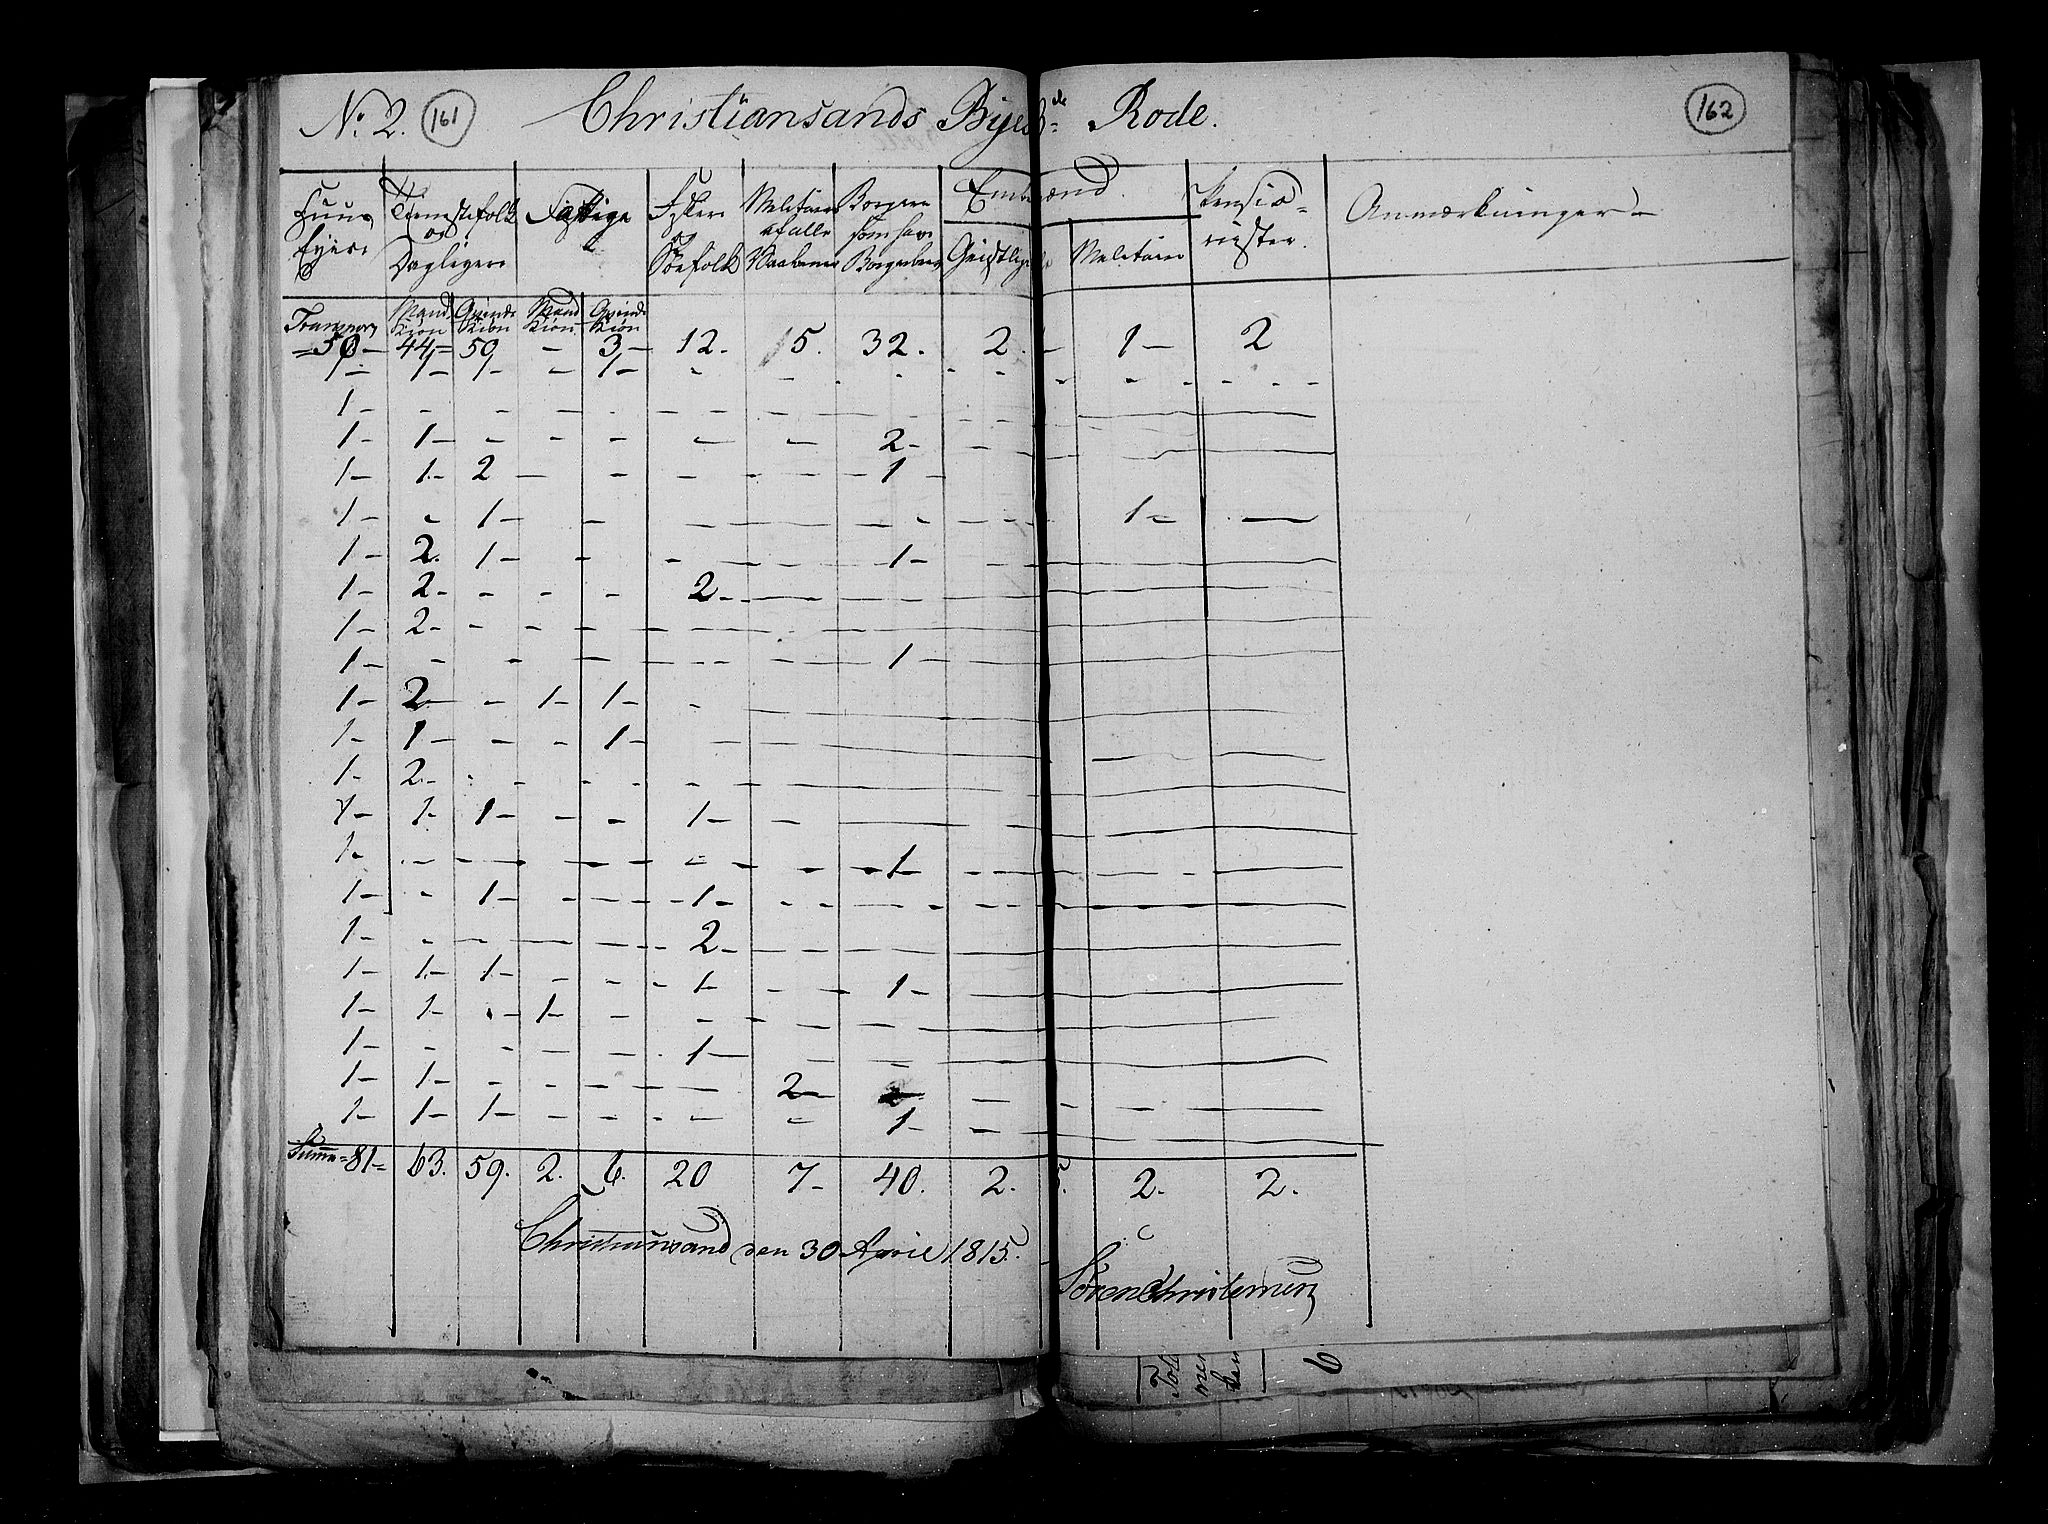 No. 2. 161 Christiansands Byes 8de Rode. 162
Huus Eyere | Tienestefolk og Dagleyere | Fattige | Fiskere og Söefolk | Militaire af alle Vaabener | Borgere som have Borgerbrev | Embedsmænd. | Pensionister. | Anmærkninger
Geistlige | Militaire
Transport | Mand Kiön | Qvinde Kiön | Mand Kiön | Qvinde Kiön
50 - | 44 - | 50 | - | 3 - | 12. | 5. | 32. | 2. - | 1 - | 2
1 - | 1 - | 1 - | - | 1 - | - | - | - | - | - | -
1 - | - | - | - | - | - | - | - | - | - | -
1 - | 1 - | - | - | - | - | - | 2 - | - | - | -
1 - | 1 - | 2 | - | - | - | - | 1 - | - | - | -
1 - | - | 1 - | - | - | - | - | - | - | 1 - | -
1 - | 2. | 1 - | - | - | - | - | 1 - | - | - | -
1 - | 2 - | - | - | - | 2 - | - | - | - | - | -
1 - | 2 - | - | - | - | - | - | - | - | - | -
1 - | - | - | - | - | - | - | 1 - | - | - | -
1 - | 2 - | - | 1 - | 1 - | - | - | - | - | - | -
1 - | 1 - | - | - | 1 - | - | - | - | - | - | -
1 - | 2 - | - | - | - | - | - | - | - | - | -
1 - | 1 - | 1 - | - | - | 1 - | - | - | - | - | -
1 - | - | - | - | - | - | - | 1 - | - | - | -
1 - | - | 1 - | - | - | 1 - | - | - | - | - | -
1 - | - | - | - | - | 2 - | - | - | - | - | -
1 - | 1 - | 1 - | - | - | 1 - | - | 1 - | - | - | -
1 - | 1 - | - | 1 - | - | - | - | - | - | - | -
1 - | - | - | - | - | 1 - | - | - | - | - | -
1 - | 1 - | - | - | - | - | 2 - | - | - | - | -
1 - | 1 - | 1 - | - | - | - | - | 1 - | - | - | -
Summa = 81 = | 63. | 59. | 2. | 6. | 20 | 7 - | 40. | 2. | 2. | 2.
Christiansand den 30 April 1815.
Sören Christensen